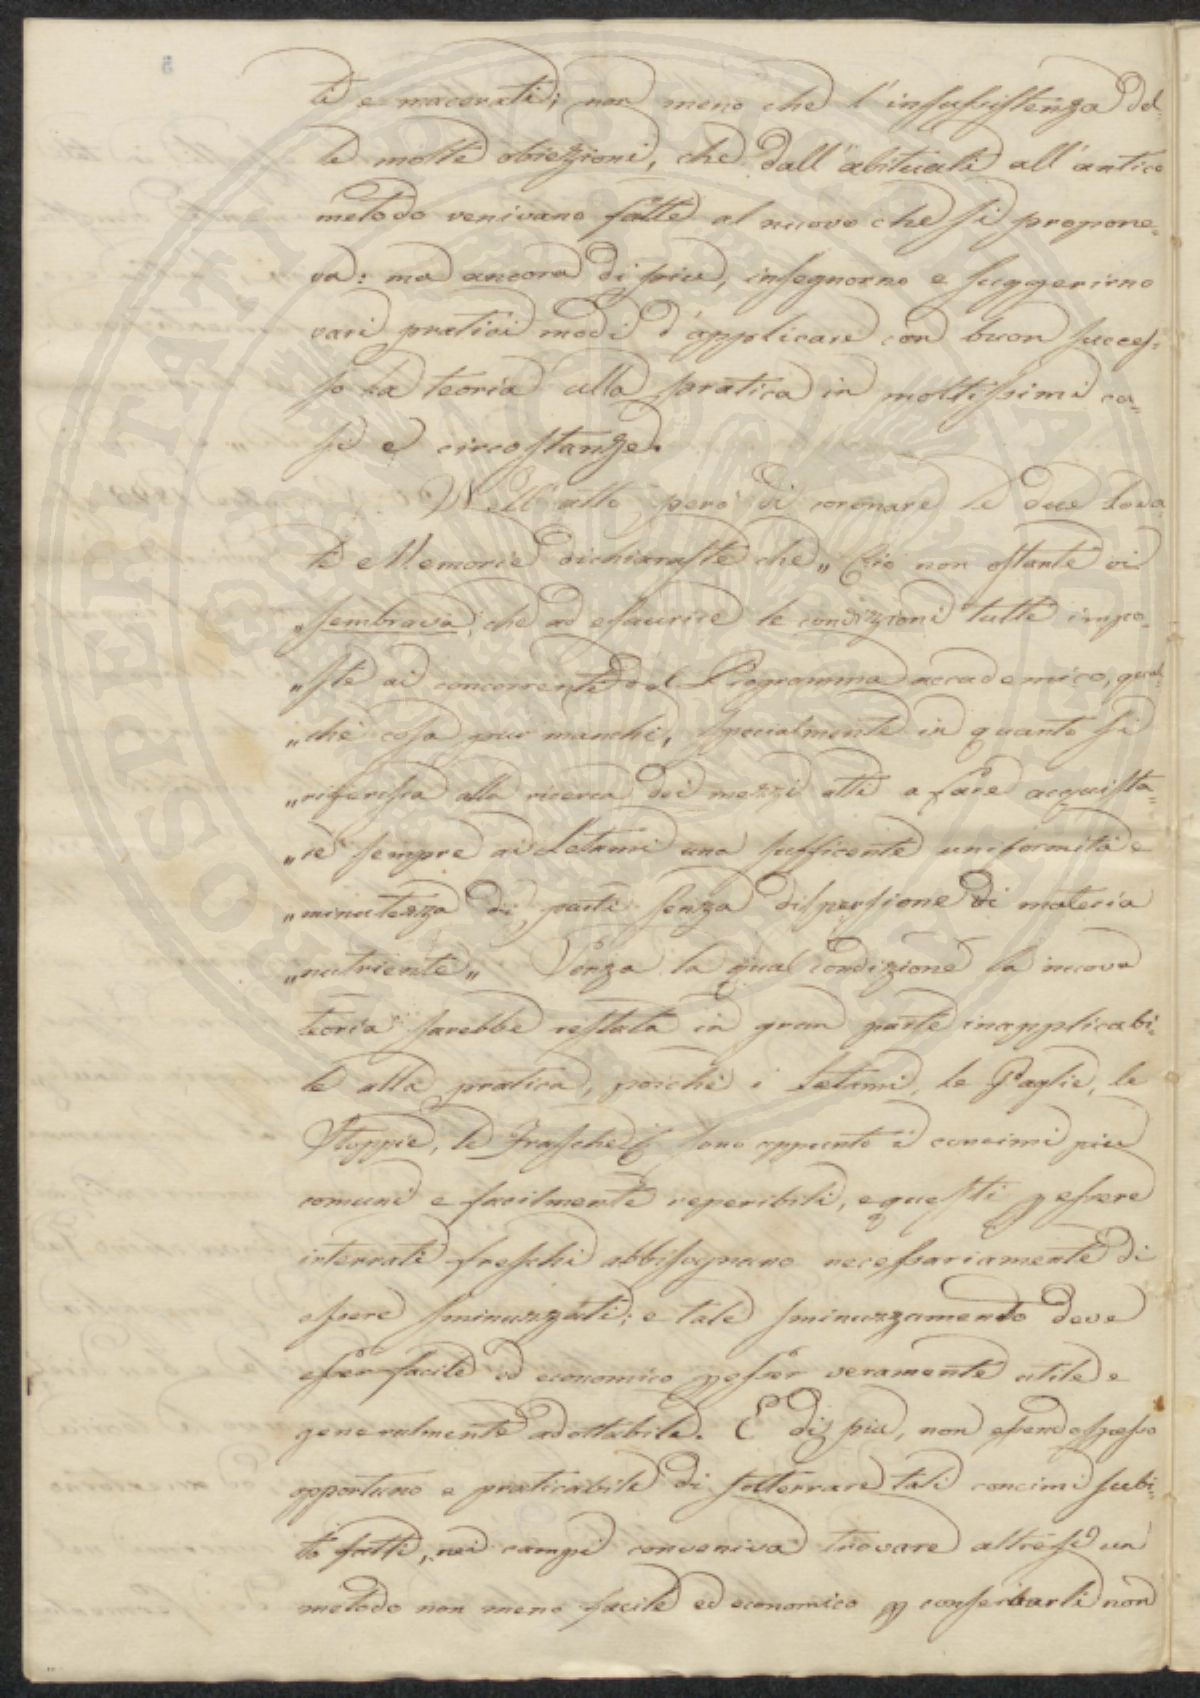 ti e macerati; non meno che l'insussistenza del-
le molte obiezzioni, che dall'abituati all'antico
metodo venivano fatte al nuovo che si propone-
va: ma ancora di più, insegnorno e suggerirno
vari pratici modi d'applicare con buon succes-
so la teoria alla pratica in moltissimi ca-
si e circostanze.
Nell'atto però di coronare le due loda-
te Memorie dichiaraste che „ Ciò non ostante vi
„ sembrava, che ad esaurire le condizzioni tutte impo-
„ ste ai concorrenti dal Programma accademico, qual-
„ che cosa pur manchi, specialmente in quanto si
„ riferisca alla ricerca dei mezzi atti a fare acquista-
„ re sempre ai Letami una sufficente uniformità e
„ minutezza di parti senza dispersione di materia
„ nutriente „ Senza la qual condizione la nuova
teoria sarebbe restata in gran parte inapplicabi-
le alla pratica, poichè i Letami, le Paglie, le
Stoppie, le Frasche &c sono appunto i concimi più
comuni e facilmente reperibili, e questi p essere
interrati freschi abbisognano necessariamente di
essere sminuzzati; e tale sminuzzamento deve
esser facile ed economico p esser veramente utile e
generalmente adottabile. E di più, non essendo spesso
opportuno e praticabile di sotterrare tali concimi subi-
to fatti, nei campi conveniva trovare altresì un
metodo non meno facile ed economico p conservarli non